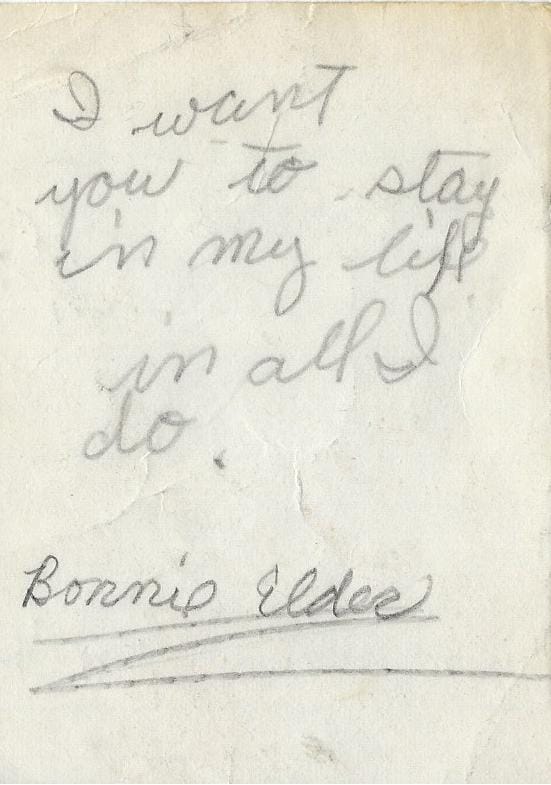 I want
you to stay
in my life
in all I
do.
Bonnie Elder